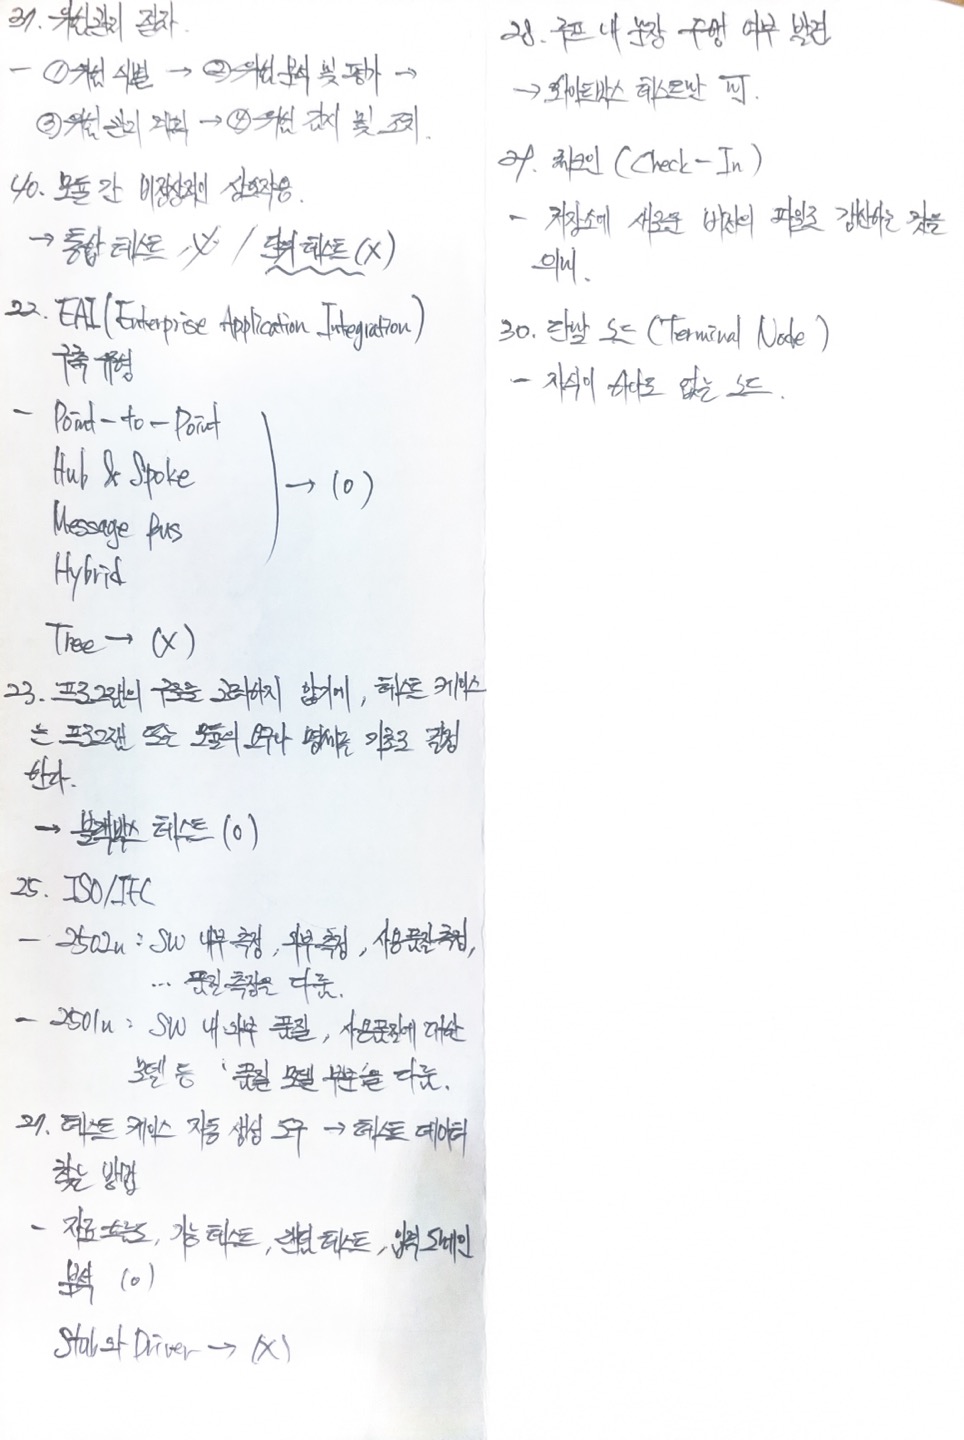 31. 위험관리 절차.
- ① 위험 식별 → ② 위험 분석 및 평가 →
③ 위험 관리 계획 → ④ 위험 감시 및 조치.
40. 모듈 간 비정상적인 상호작용.
→ 통합 테스트 / 단위 테스트 (X)
22. EAI (Enterprise Application Integration)
구축 유형
- Point-to-Point
Hub & Spoke
Message Bus
Hybrid
→ (O)
Tree → (X)
23. 프로그램의 구조를 고려하지 않기에, 테스트 케이스
는 프로그램 또는 모듈의 요구나 명세를 기초로 결정
한다.
→ 블랙박스 테스트 (O)
25. ISO/IEC
- 2502n : SW 내부 측정, 외부 측정, 사용품질 측정,
... 품질 측정을 다룸.
- 2501n : SW 내·외부 품질, 사용품질에 대한
모델 등 '품질 모델 부문'을 다룸.
27. 테스트 케이스 자동 생성 도구 → 테스트 데이터
찾는 방법
- 자료 흐름도, 기능 테스트, 랜덤 테스트, 입력 도메인
분석 (O)
Stub와 Driver → (X)
28. 루프 내 문장 수행 여부 발견
→ 화이트박스 테스트만 可.
29. 체크인 (Check-In)
- 저장소에 새로운 버전의 파일로 갱신하는 것을
의미.
30. 단말 노드 (Terminal Node)
- 자식이 하나도 없는 노드.